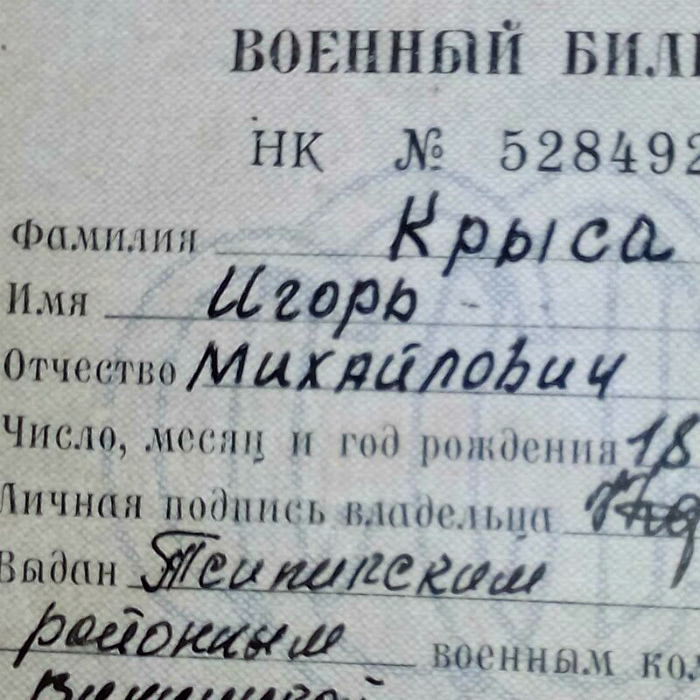 ВОЕННЫЙ БИЛ
НК № 528492
Фамилия Крыса
Имя Игорь
Отчество Михайлович
Число, месяц и год рождения 18
Личная подпись владельца
Выдан
районным военным ко